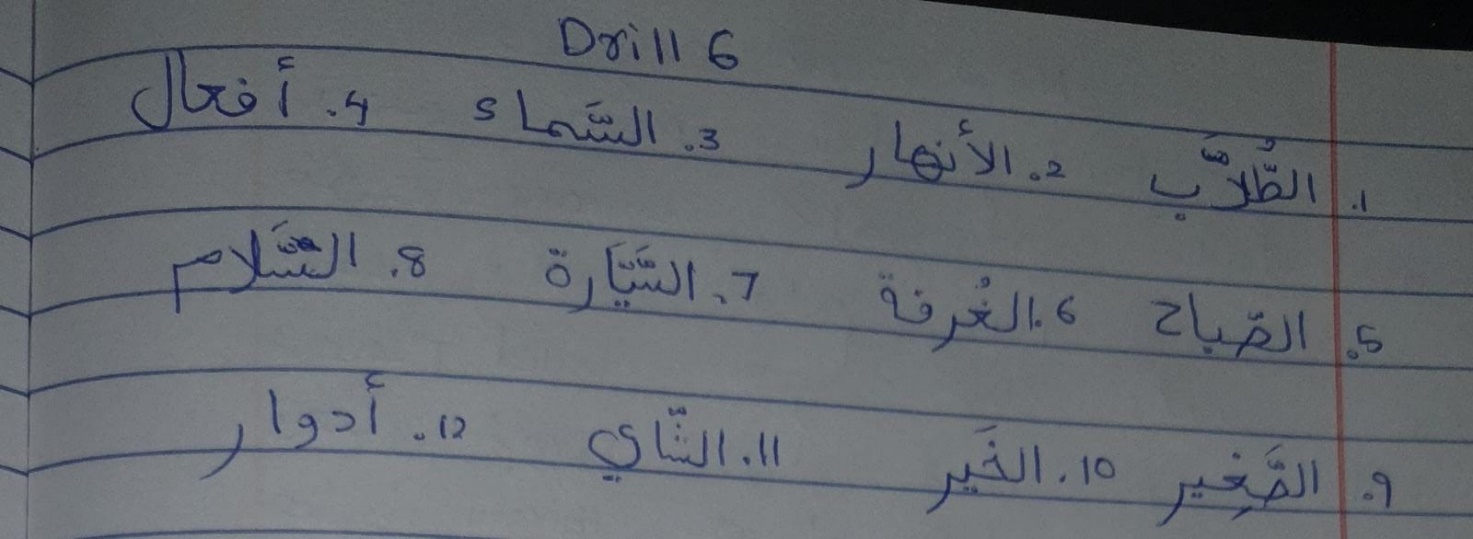 Drill 6
1. الطُّلاَّب 2. الأَنهار 3. السَّماء 4. أَفعال
5. الصَّباح 6. الغُرفة 7. السَّيَّارة 8. السَّلام
9. الصَّغِير 10. الخَير 11. الشَّاي 12. أَدوار